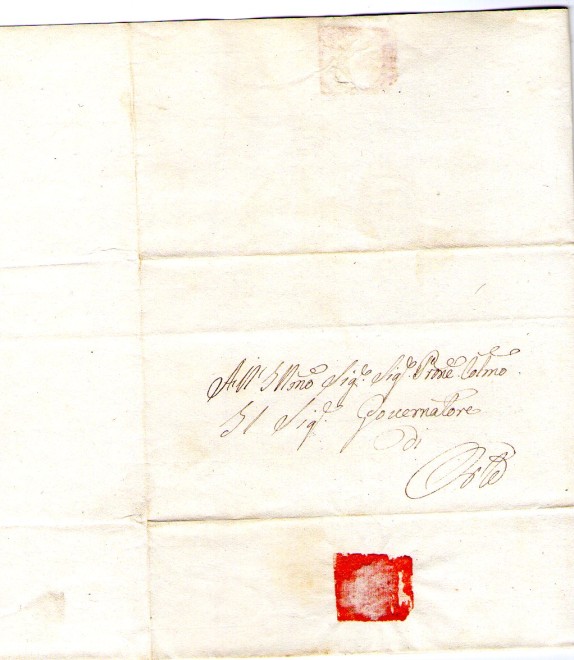 All' Illmo Sig.e Sig.e Prone Colmo.
Il Sig.e Governatore
di
Orte